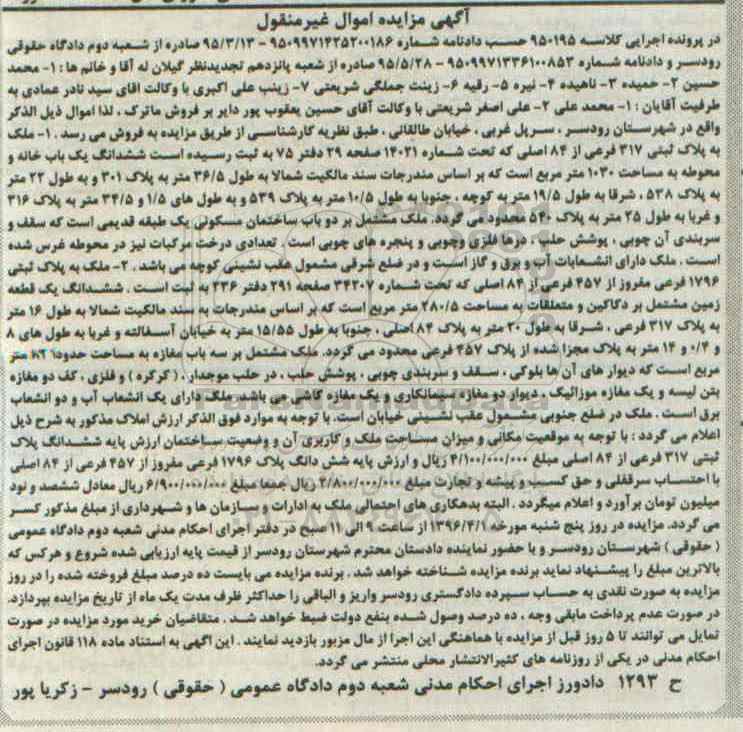 آگهی مزایده اموال غیرمنقول
در پرونده اجرایی کلاسه ۹۵۰۱۹۵ حسب دادنامه شماره ۹۵۰۹۹۷۱۴۲۵۲۰۰۱۸۶ - ۹۵/۳/۱۳ صادره از شعبه دوم دادگاه حقوقی
رودسر و دادنامه شماره ۹۵۰۹۹۷۱۳۳۶۱۰۰۸۵۳ - ۹۵/۵/۲۸ صادره از شعبه پانزدهم تجدیدنظر گیلان له آقا و خانم ها : ۱- محمد
حسین ۲- حمیده ۳- ناهیده ۴- نیره ۵- رقیه ۶- زینت جملگی شریعتی ۷- زینب علی اکبری با وکالت اقای سید نادر عمادی به
طرفیت آقایان : ۱- محمد علی ۲- علی اصغر شریعتی با وکالت آقای حسین یعقوب پور دایر بر فروش ماترک ، لذا اموال ذیل الذکر
واقع در شهرستان رودسر ، سرپل غربی ، خیابان طالقانی ، طبق نظریه کارشناسی از طریق مزایده به فروش می رسد . ۱- ملک
به پلاک ثبتی ۳۱۷ فرعی از ۸۴ اصلی که تحت شماره ۱۴۰۲۱ صفحه ۲۹ دفتر ۷۵ به ثبت رسیده است ششدانگ یک باب خانه و
محوطه به مساحت ۱۰۳۰ متر مربع است که بر اساس مندرجات سند مالکیت شمالا به طول ۳۶/۵ متر به پلاک ۳۰۱ و به طول ۲۲ متر
به پلاک ۵۳۸ ، شرقا به طول ۱۹/۵ متر به کوچه ، جنوبا به طول ۱۰/۵ متر به پلاک ۵۳۹ و به طول های ۱/۵ و ۳۴/۵ متر به پلاک ۳۱۶
و غربا به طول ۲۵ متر به پلاک ۵۴۰ محدود می گردد. ملک مشتمل بر دو باب ساختمان مسکونی یک طبقه قدیمی است که سقف و
سربندی آن چوبی ، پوشش حلب ، درها فلزی وچوبی و پنجره های چوبی است . تعدادی درخت مرکبات نیز در محوطه غرس شده
است . ملک دارای انشعابات آب و برق و گاز است و در ضلع شرقی مشمول عقب نشینی کوچه می باشد . ۲- ملک به پلاک ثبتی
۱۷۹۶ فرعی مفروز از ۴۵۷ فرعی از ۸۴ اصلی که تحت شماره ۳۴۲۰۷ صفحه ۲۹۱ دفتر ۲۳۶ به ثبت است . ششدانگ یک قطعه
زمین مشتمل بر دکاکین و متعلقات به مساحت ۲۸۰/۵ متر مربع است که بر اساس مندرجات به سند مالکیت شمالا به طول ۱۶ متر
به پلاک ۳۱۷ فرعی ، شرقا به طول ۲۰ متر به پلاک ۸۴ اصلی ، جنوبا به طول ۱۵/۵۵ متر به خیابان آسفالته و غربا به طول های ۸
و ۰/۴ و ۱۴ متر به پلاک مجزا شده از پلاک ۴۵۷ فرعی محدود می گردد. ملک مشتمل بر سه باب مغازه به مساحت حدودا متر
مربع است که دیوار های آن ها بلوکی ، سقف و سربندی چوبی ، پوشش حلب ، در حلب موجدار ، ( کرکره ) و فلزی ، کف دو مغازه
بتن لیسه و یک مغازه موزائیک ، دیوار دو مغازه سیمانکاری و یک مغازه کاشی می باشد. ملک دارای یک انشعاب آب و دو انشعاب
برق است . ملک در ضلع جنوبی مشمول عقب نشینی خیابان است. با توجه به موارد فوق الذکر ارزش املاک مذکور به شرح ذیل
اعلام می گردد : با توجه به موقعیت مکانی و میزان مساحت ملک و کاربری آن و وضعیت ساختمان ارزش پایه ششدانگ پلاک
ثبتی ۳۱۷ فرعی از ۸۴ اصلی مبلغ ۴/۱۰۰/۰۰۰/۰۰۰ ریال و ارزش پایه شش دانگ پلاک ۱۷۹۶ فرعی مفروز از ۴۵۷ فرعی از ۸۴ اصلی
با احتساب سرقفلی و حق کسب و پیشه و تجارت مبلغ ۲/۸۰۰/۰۰۰/۰۰۰ ریال جمعا مبلغ ۶/۹۰۰/۰۰۰/۰۰۰ ریال معادل ششصد و نود
میلیون تومان برآورد و اعلام میگردد . البته بدهکاری های احتمالی ملک به ادارات و سازمان ها و شهرداری از مبلغ مذکور کسر
می گردد. مزایده در روز پنج شنبه مورخه ۱۳۹۶/۴/۱ از ساعت ۹ الی ۱۱ صبح در دفتر اجرای احکام مدنی شعبه دوم دادگاه عمومی
( حقوقی ) شهرستان رودسر و با حضور نماینده دادستان محترم شهرستان رودسر از قیمت پایه ارزیابی شده شروع و هرکس که
بالاترین مبلغ را پیشنهاد نماید برنده مزایده شناخته خواهد شد . برنده مزایده می بایست ده درصد مبلغ فروخته شده را در روز
مزایده به صورت نقدی به حساب سپرده دادگستری رودسر واریز و الباقی را حداکثر ظرف مدت یک ماه از تاریخ مزایده بپردازد.
در صورت عدم پرداخت مابقی وجه ، ده درصد وصول شده بنفع دولت ضبط خواهد شد . متقاضیان خرید مورد مزایده در صورت
تمایل می توانند تا ۵ روز قبل از مزایده با هماهنگی این اجرا از مال مزبور بازدید نمایند . این آگهی به استناد ماده ۱۱۸ قانون اجرای
احکام مدنی در یکی از روزنامه های کثیرالانتشار محلی منتشر می گردد.
ح ۱۲۹۳ دادورز اجرای احکام مدنی شعبه دوم دادگاه عمومی ( حقوقی ) رودسر - زکریا پور